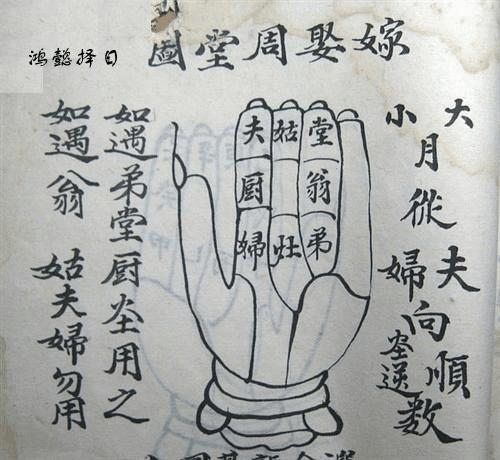 鸿懿择日
嫁娶周堂圖
大小
月從
夫婦
向
順逆
數
夫姑堂
厨翁
婦灶弟
如遇弟堂厨用之
如遇翁姑夫婦勿用